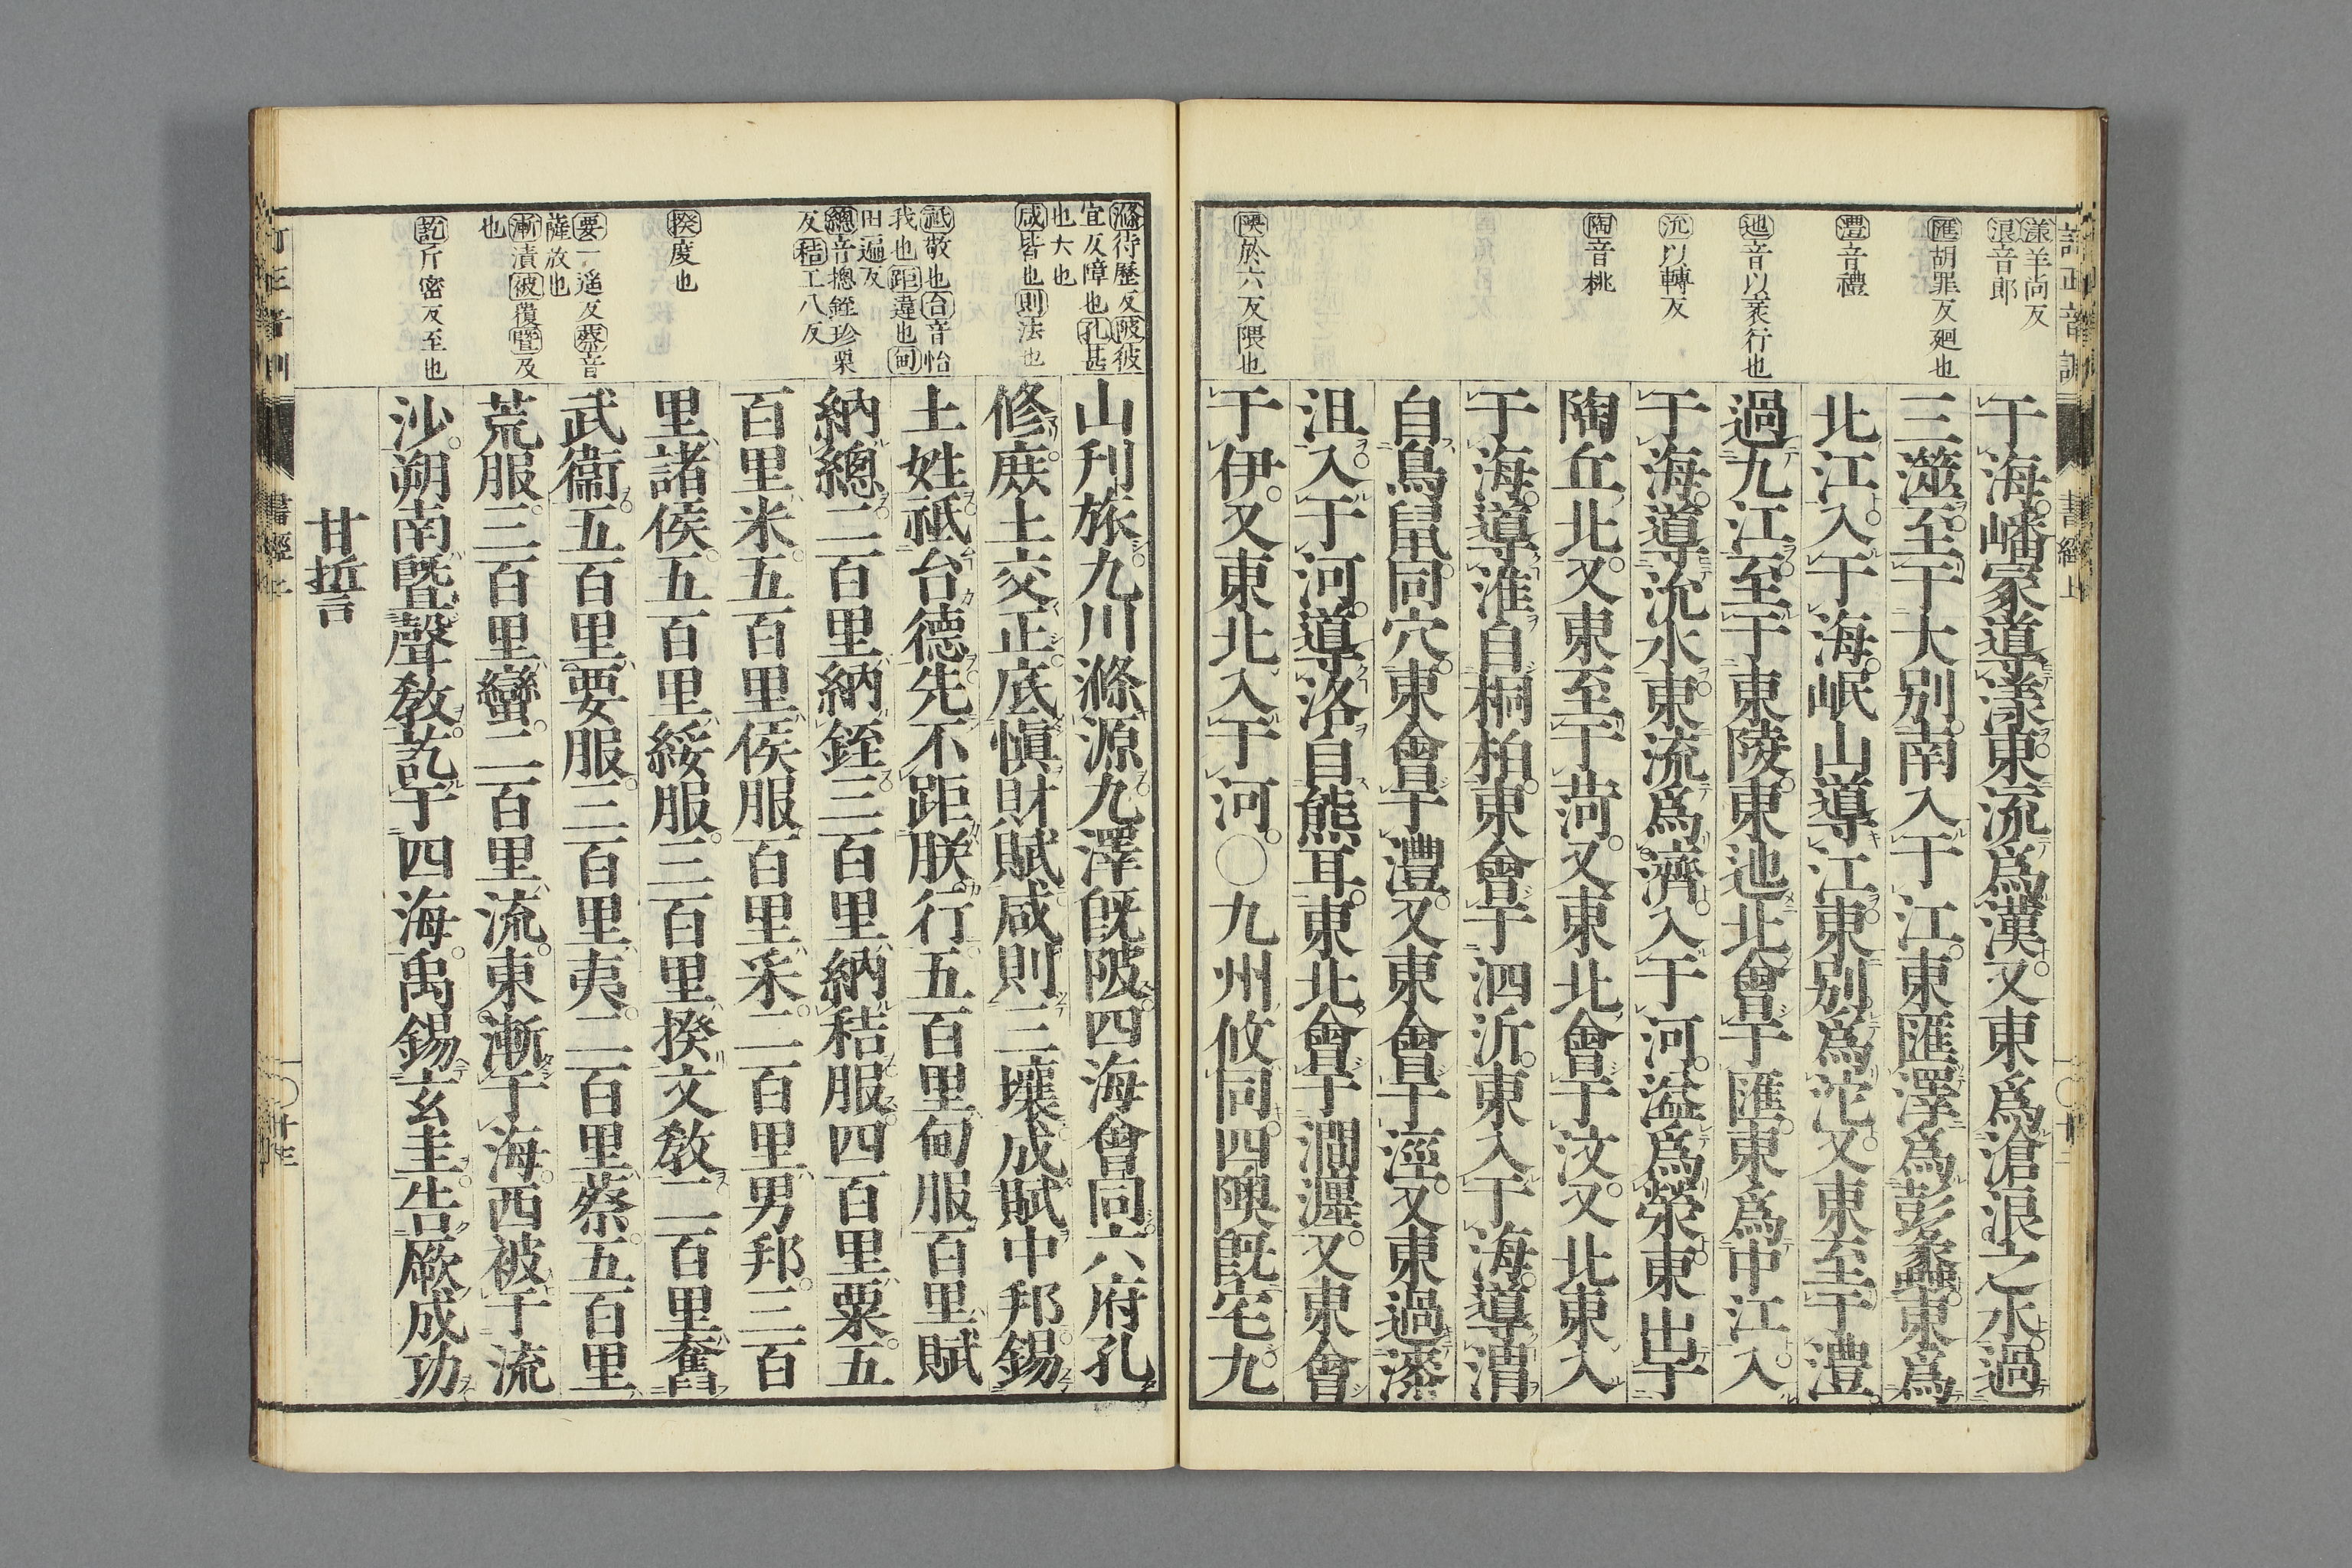 漾羊尚反
浪音郎
匯胡罪反廻也
澧音禮
迆音以衺行也
沇以轉反
陶音桃
隩於六反隈也
于海嶓冢導漾東流爲漢又東爲滄浪之水過
三澨至于大別南入于江東匯澤爲彭蠡東爲
北江入于海岷山導江東別爲沱又東至于澧
過九江至于東陵東迆北會于匯東爲中江入
于海導沇水東流爲濟入于河溢爲滎東出于
陶丘北又東至于菏又東北會于汶又北東入
于海導淮自桐柏東會于泗沂東入于海導渭
自鳥鼠同穴東會于灃又東會于涇又東過漆
沮入于河導洛自熊耳東北會于澗瀍又東會
于伊又東北入于河〇九州攸同四隩既宅九
滌待歷反陂彼
宜反障也孔甚
也大也
咸皆也則法也
祗敬也台音怡
我也距違也甸
田遍反
總音摠銍珍栗
反秸工八反
揆度也
要一遥反蔡音
薩放也
漸漬被覆曁及
也
訖斤密反至也
山刋旅九川滌源九澤既陂四海會同六府孔
修庶土交正底愼財賦咸則三壤成賦中邦錫
土姓祗台德先不距朕行五百里甸服百里賦
納總二百里納銍三百里納秸服四百里粟五
百里米五百里侯服百里采二百里男邦三百
里諸侯五百里綏服三百里揆文敎二百里奮
武衞五百里要服三百里夷二百里蔡五百里
荒服三百里蠻二百里流東漸于海西被于流
沙朔南曁聲敎訖于四海禹錫玄圭告厥成功
甘誓